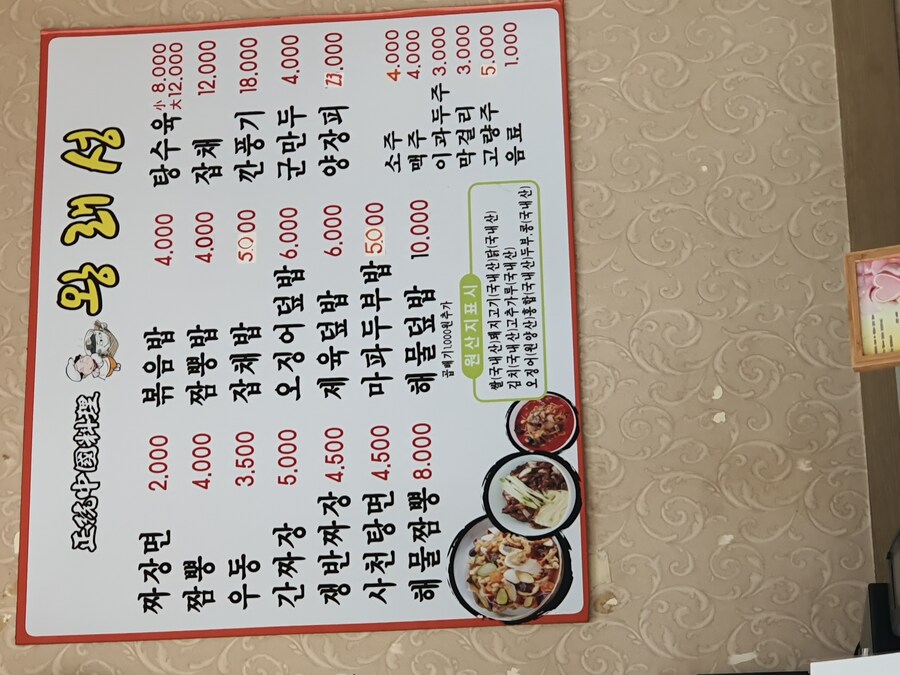 正統中國料理 왕래성
짜장면 2.000
짬뽕 4.000
우동 3.500
간짜장 5.000
쟁반짜장 4.500
사천탕면 4.500
해물짬뽕 8.000
볶음밥 4.000
짬뽕밥 4.000
잡채밥 5.000
오징어덮밥 6.000
제육덮밥 6.000
마파두부밥 5.000
해물덮밥 10.000
곱배기1.000원추가
탕수육 小 8.000
大 12.000
잡채 12.000
깐풍기 18.000
군만두 4.000
양장피 23.000
소주 4.000
맥주 4.000
이과두주 3.000
막걸리 3.000
고량주 5.000
음료 1.000
원산지표시
쌀(국내산)돼지고기(국내산)닭(국내산)
김치(국내산)고추가루(국내산)
오징어(원양산)홍합(국내산)두부.콩(국내산)